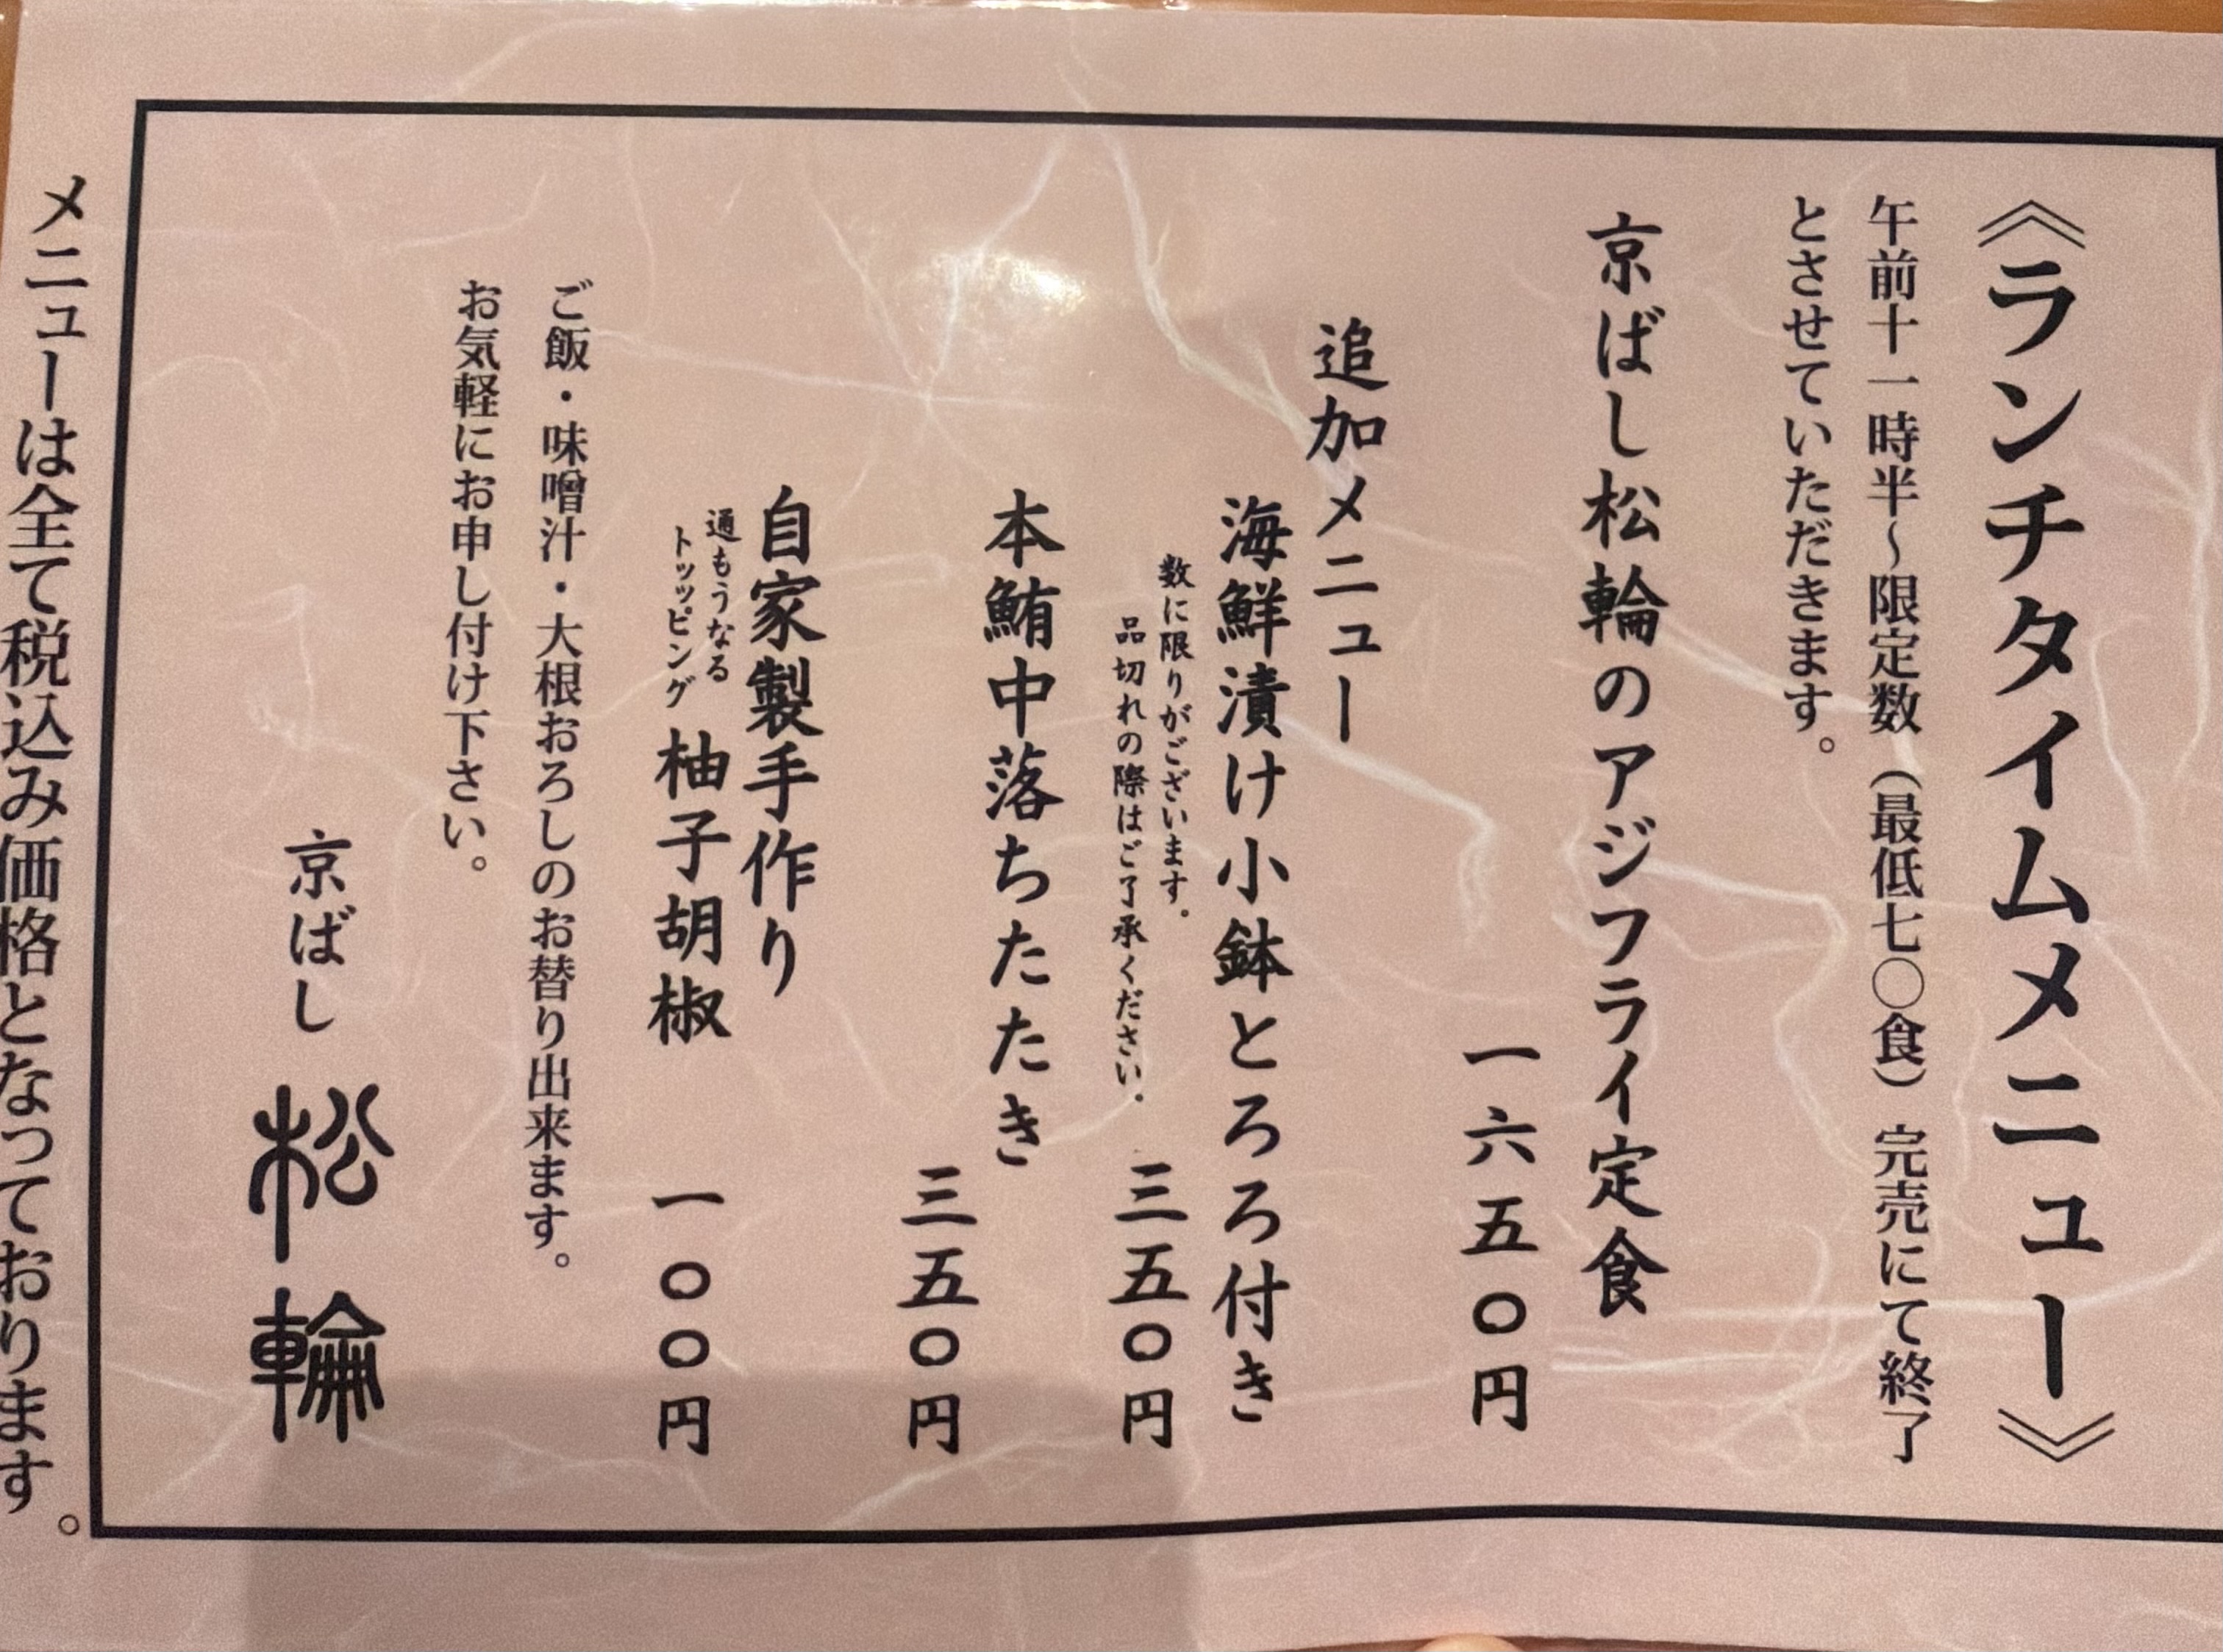 《ランチタイムメニュー》
午前十一時半〜限定数（最低七〇食）完売にて終了
とさせていただきます。
京ばし松輪のアジフライ定食
一六五〇円
追加メニュー
海鮮漬け小鉢とろろ付き
数に限りがございます。
品切れの際はご了承ください。
三五〇円
本鮪中落ちたたき
三五〇円
自家製手作り
通もうなる
トッピング
柚子胡椒
一〇〇円
ご飯・味噌汁・大根おろしのお替り出来ます。
お気軽にお申し付け下さい。
京ばし 松輪
メニューは全て税込み価格となっております。